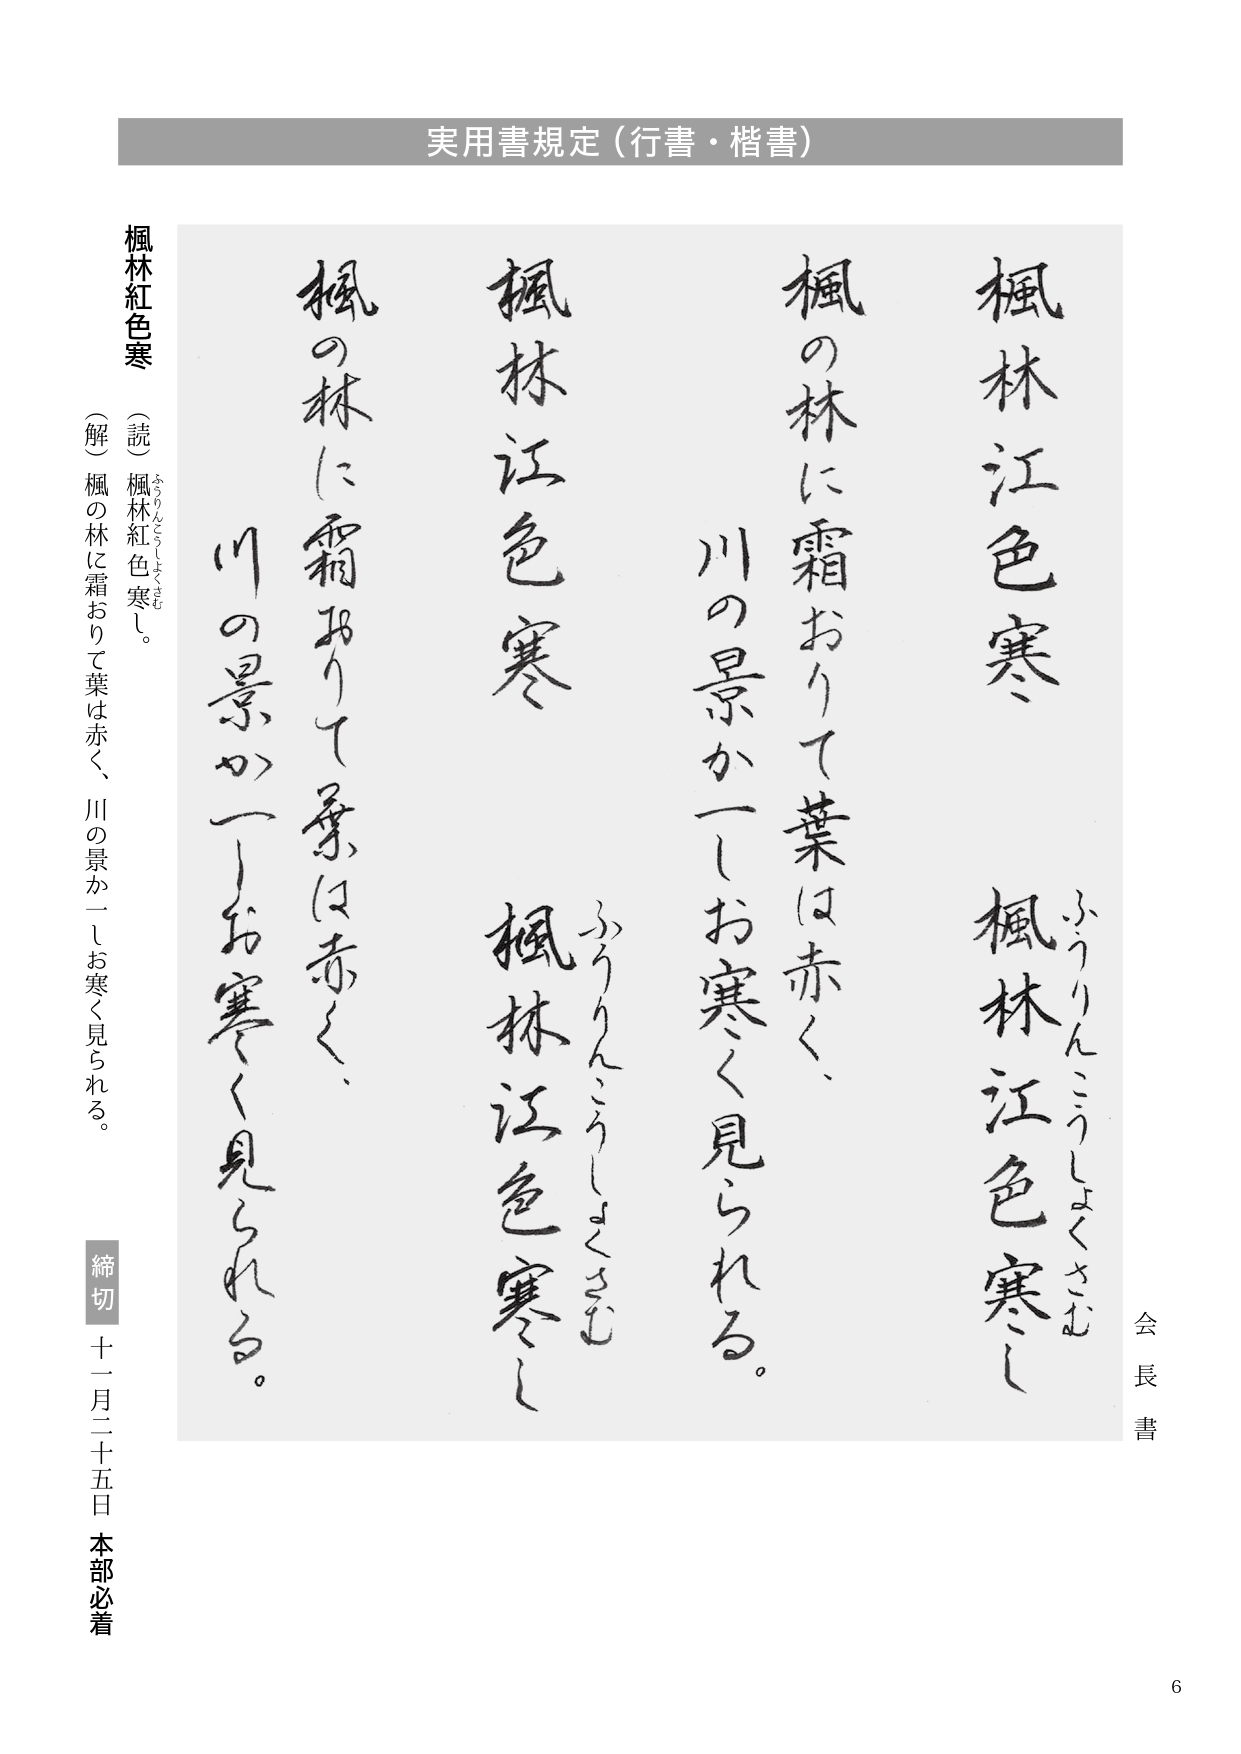 実用書規定（行書・楷書）
会長書
楓林江色寒
ふうりんこうしょくさむ
楓林江色寒し
楓の林に霜おりて葉は赤く、
川の景か一しお寒く見られる。
楓林江色寒
ふうりんこうしょくさむ
楓林江色寒し
楓の林に霜おりて葉は赤く、
川の景か一しお寒く見られる。
楓林紅色寒
（読）楓林紅色寒し。
ふうりんこうしよくさむ
（解）楓の林に霜おりて葉は赤く、川の景か一しお寒く見られる。
締切 十一月二十五日 本部必着
6